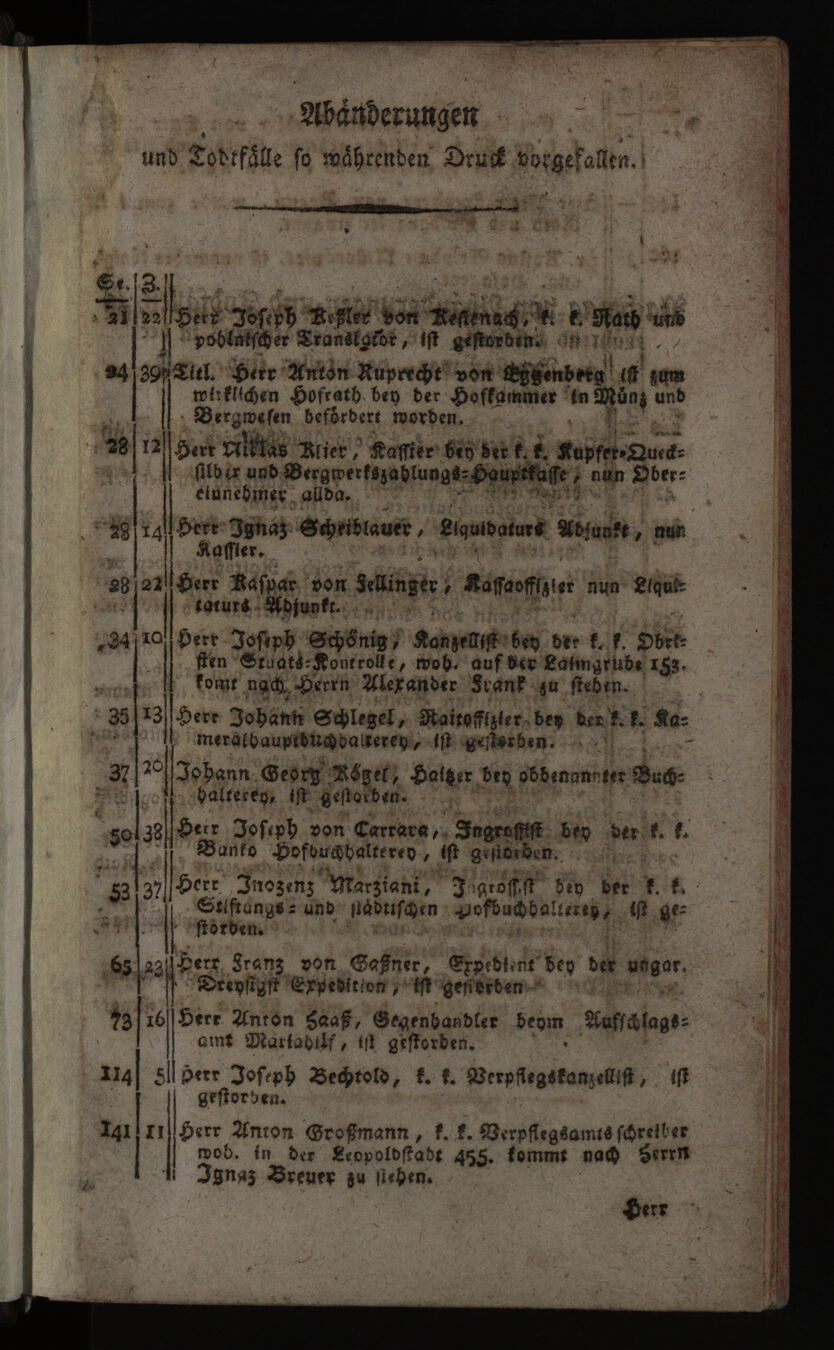 Abänderungen
und Todtfälle so währenden Druck vorgefallen.
Se. Z.
21 22 Herr Joseph Keßler von Kestenach, k. k. Rath und
pohlnischer Translator, ist gestorben.
24 39 Titl. Herr Anton Ruprecht von Eggenberg ist zum
wirklichen Hofrath bey der Hofkammer in Münz und
Bergwesen befördert worden.
28 12 Herr Niklas Klier, Kassier bey der k. k. Kupfer-Queck-
silber und Bergwerkszahlungs-Hauptkasse, nun Ober-
einnehmer allda.
28 14 Herr Ignaz Schreiblauer, Liquidaturs Adjunkt, nun
Kassier.
28 22 Herr Kaspar von Fellinger, Kassaoffizier nun Liqui-
taturs Adjunkt.
34 10 Herr Joseph Schönig, Kanzellist bey der k. k. Obri-
sten Staats-Kontrolle, woh. auf der Laimgrube 153.
komt nach Herrn Alexander Frank zu stehen.
35 13 Herr Johann Schlegel, Raitoffizier bey der k. k. Ka-
meralhauptbuchhalterey, ist gestorben.
37 20 Johann Georg Kögel, Haitzer bey obbenannter Buch-
halterey, ist gestorben.
50 38 Herr Joseph von Carrara, Ingrossist bey der k. k.
Banko Hofbuchhalterey, ist gestorben.
53 37 Herr Inozenz Marziani, Ingrossist bey der k. k.
Stiftungs- und städtischen Hofbuchhalterey, ist ge-
storben.
65 23 Herr Franz von Gaßner, Expedient bey der ungar.
Dreysigst Expedition, ist gestorben
73 16 Herr Anton Haaß, Gegenhandler beym Aufschlags-
amt Mariahilf, ist gestorben.
114 5 Herr Joseph Bechtold, k. k. Verpflegskanzellist, ist
gestorben.
141 11 Herr Anton Großmann, k. k. Verpflegsamtsschreiber
woh. in der Leopoldstadt 455. kommt nach Herrn
Ignaz Breuer zu stehen.
Herr